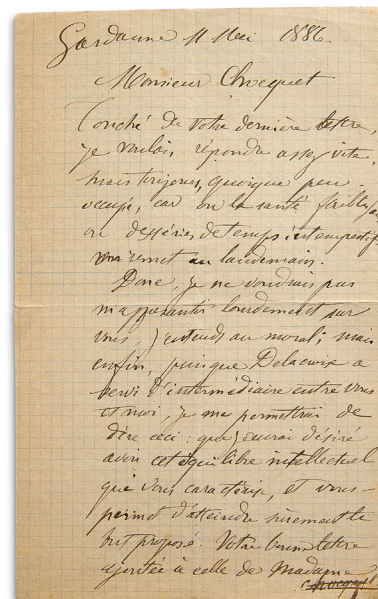 Gardanne 11 Mai 1886.
Monsieur Chocquet
Touché de votre dernière lettre,
je voulais répondre assez vite,
mais toujours, quoique peu
occupé, car ou la santé faible,
ou des séries de temps intempestif
vous remet au lendemain.
Donc, je ne voudrais pas
m'appesantir lourdement sur
vous, j'entends au moral; mais
enfin, puisque Delacroix a
servi d'intermédiaire entre vous
et moi, je me permettrai de
dire ceci: que j'aurai désiré
avoir cet équilibre intellectuel
qui vous caractérise, et vous
permet d'atteindre sûrement le
but proposé. Votre bonne lettre
ajoutée à celle de Madame
Chocquet